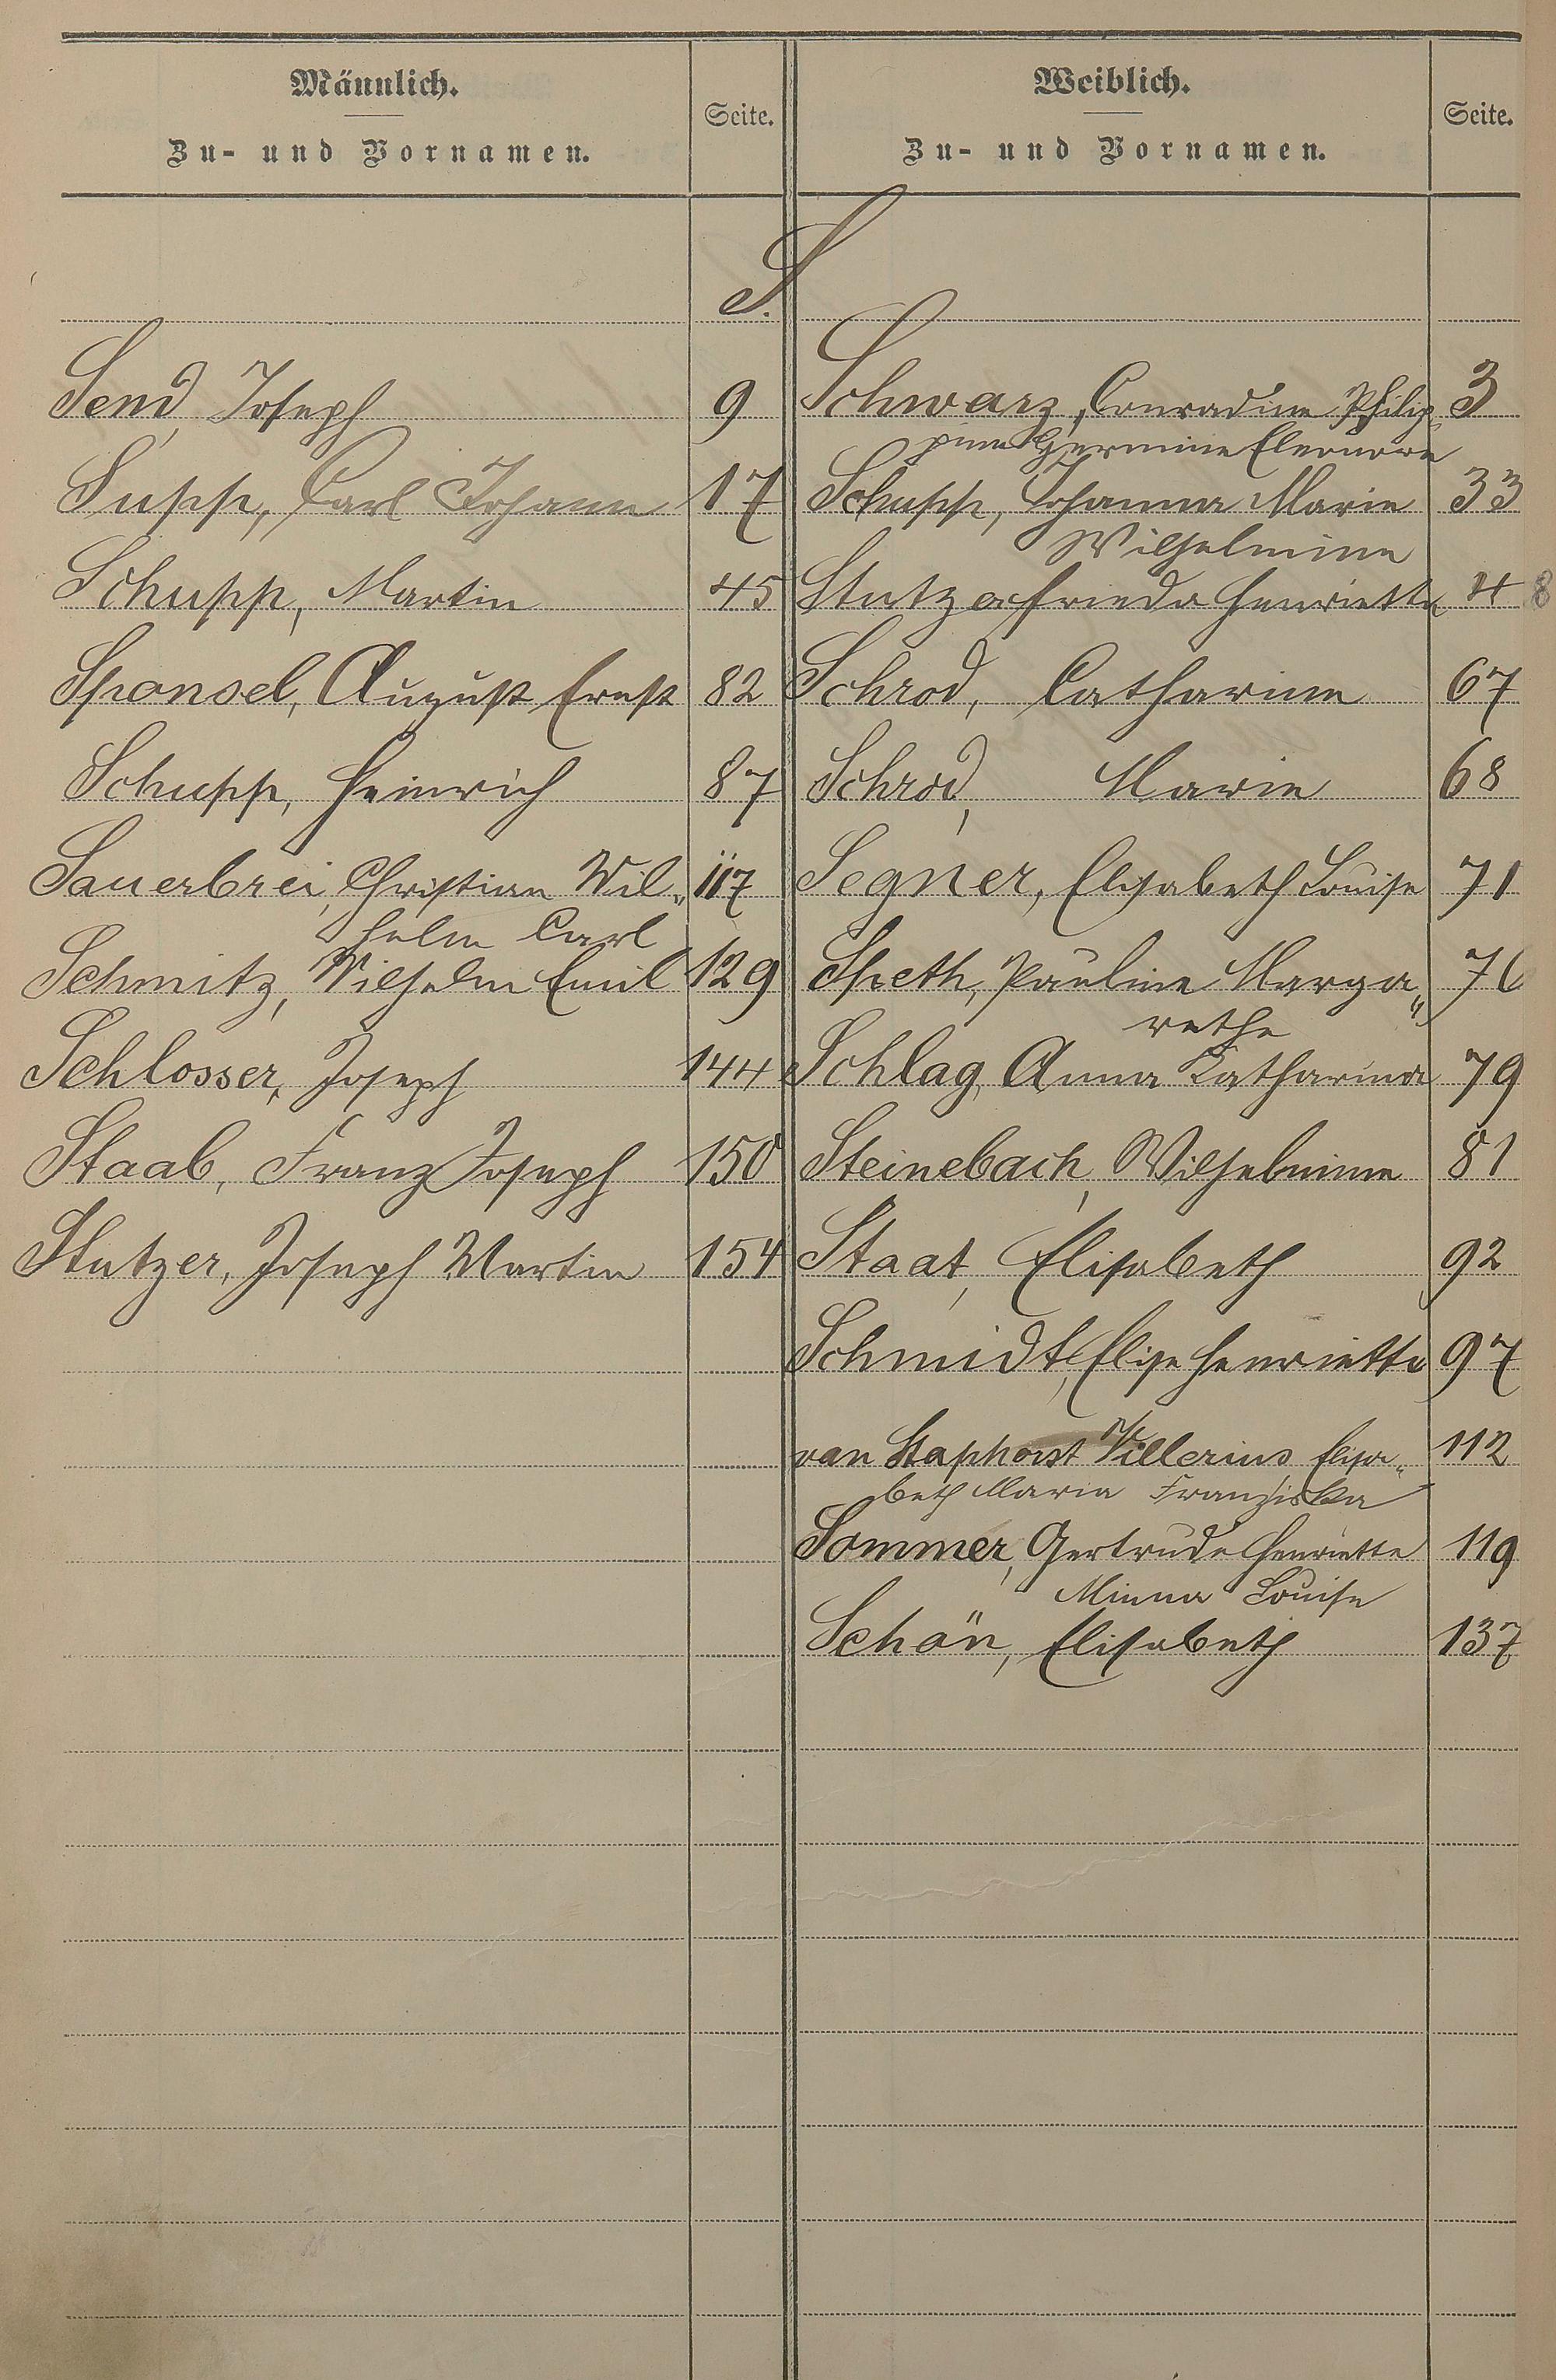 Männlich.
Zu- und Vornamen.
Seite.
Weiblich.
Zu- und Vornamen.
Seite.
S.
Send, Joseph 9
Supp, Carl Johann 17
Schupp, Martin 45
Sponsel, August Ernst 82
Schupp, Heinrich 87
Sauerbrei, Christian Wil-
helm Carl 117
Schmitz, Wilhelm Emil 129
Schlosser, Joseph 144
Staab, Franz Joseph 150
Stutzer, Joseph Martin 154
Schwarz, Conradine Philip- 3
pine Hermine Eleonore
Schupp, Johanna Marie 33
Wilhelmine
Frieda Henriette 48
Schrod, Catharine 67
Schrod, Marie 68
Segner, Elisabeth Louise 71
Speth, Pauline Marga- 76
rethe
Schlag, Anna Katharina 79
Steinebach, Wilhelmine 81
Staat, Elisabeth 92
Schmidt, Elise Henriette 97
van Staphorst Villerius Elisa- 112
beth Maria Franziska
Sommer, Gertrude Henriette 119
Minna Louise
Schön, Elisabeth 137